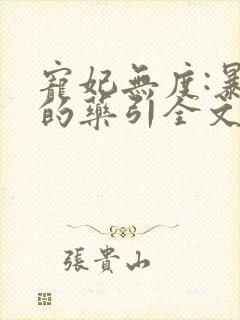 寵妃無度:暴
的藥引全文
張貴山